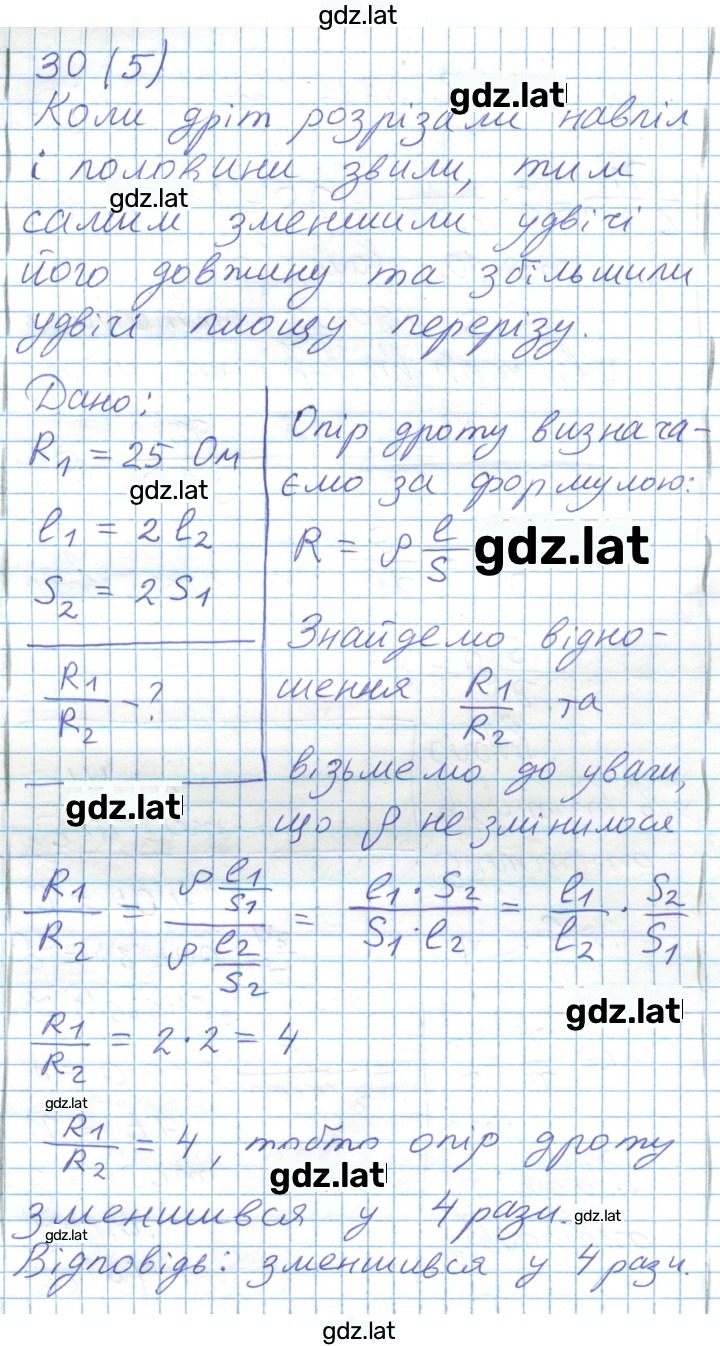 gdz.lat
30 (5)
gdz.lat
Коли дріт розрізали навпіл
і половини звили, тим
gdz.lat
самим зменшили удвічі
його довжину та збільшили
удвічі площу перерізу.
Дано:
R1 = 25 Ом
gdz.lat
l1 = 2 l2
S2 = 2 S1
R1/R2 - ?
gdz.lat
Опір дроту визнача-
ємо за формулою:
R = ρ l/S
gdz.lat
Знайдемо відно-
шення R1/R2 та
візьмемо до уваги,
що ρ не змінилося
R1/R2 = (ρ l1/S1)/(ρ l2/S2) = (l1 · S2)/(S1 · l2) = l1/l2 · S2/S1
gdz.lat
R1/R2 = 2 · 2 = 4
gdz.lat
R1/R2 = 4, тобто опір дроту
gdz.lat
зменшився у 4 рази.
gdz.lat
gdz.lat
Відповідь: зменшився у 4 рази.
gdz.lat